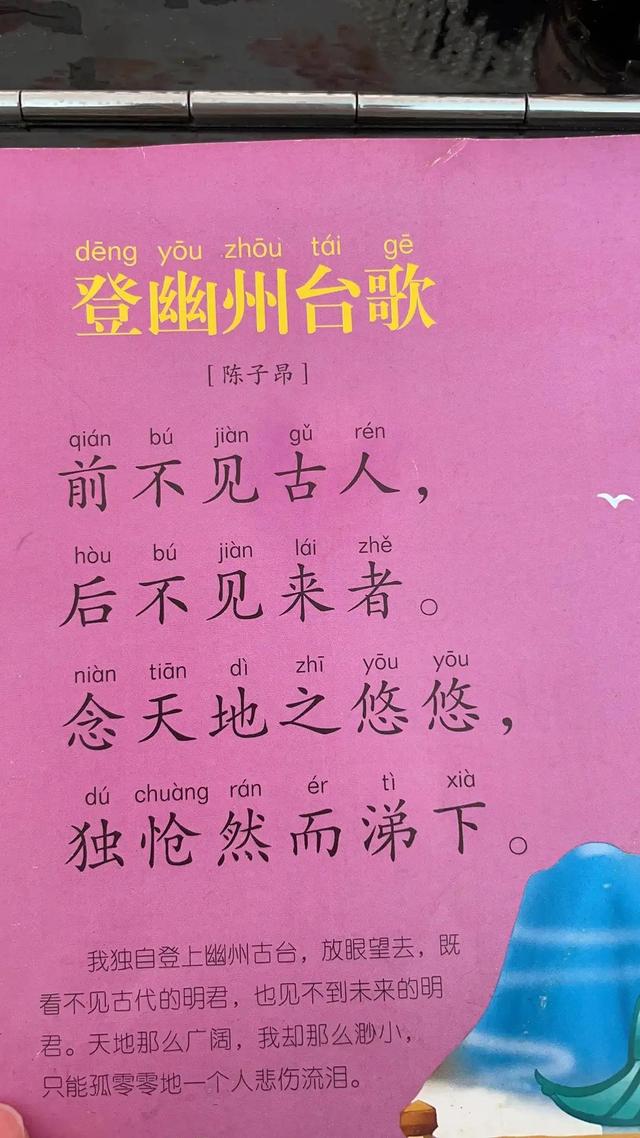 dēng yōu zhōu tái gē
登幽州台歌
[陈子昂]
qián bú jiàn gǔ rén
前不见古人，
hòu bú jiàn lái zhě
后不见来者。
niàn tiān dì zhī yōu yōu
念天地之悠悠，
dú chuàng rán ér tì xià
独怆然而涕下。
我独自登上幽州古台，放眼望去，既
看不见古代的明君，也见不到未来的明
君。天地那么广阔，我却那么渺小，
只能孤零零地一个人悲伤流泪。